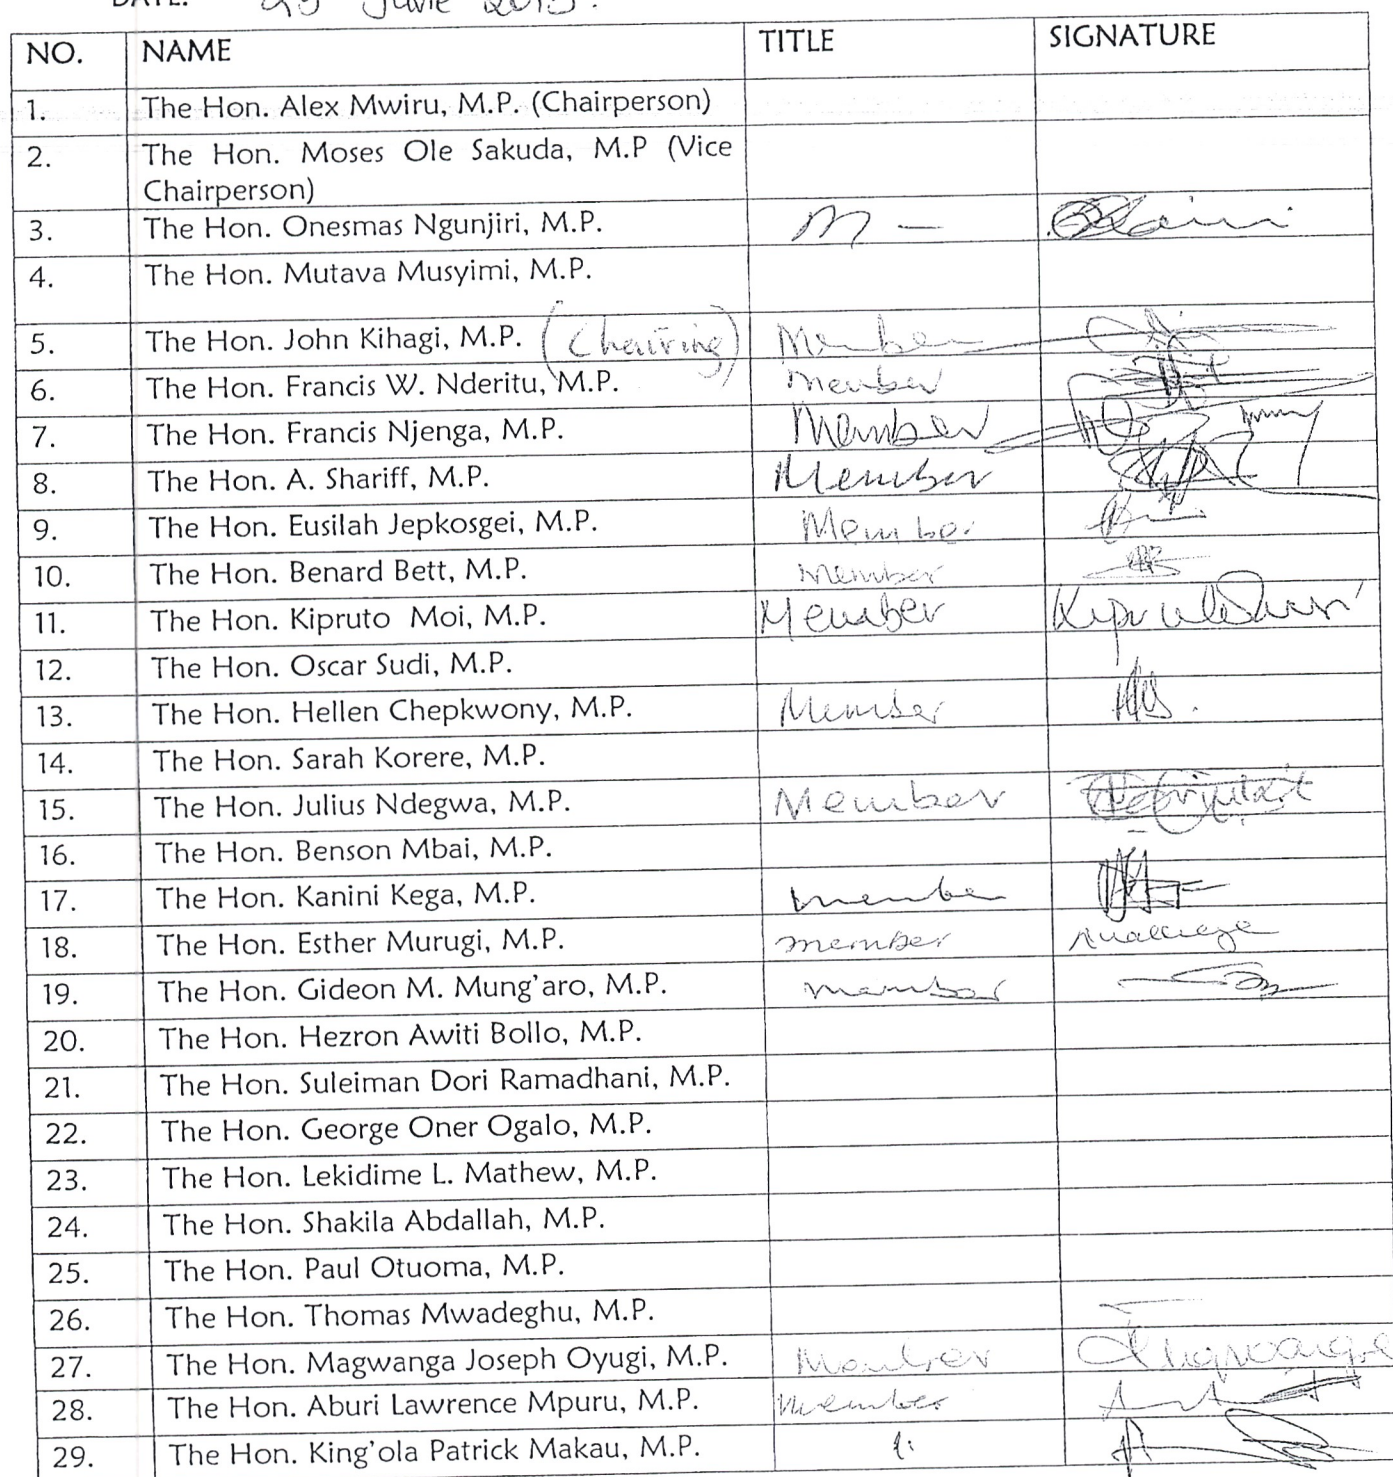 DATE: 25 June 2015.
NO. NAME TITLE SIGNATURE
1. The Hon. Alex Mwiru, M.P. (Chairperson)
2. The Hon. Moses Ole Sakuda, M.P (Vice
Chairperson)
3. The Hon. Onesmas Ngunjiri, M.P. M -
4. The Hon. Mutava Musyimi, M.P.
5. The Hon. John Kihagi, M.P. (Chairing) Member
6. The Hon. Francis W. Nderitu, M.P. Member
7. The Hon. Francis Njenga, M.P. Member
8. The Hon. A. Shariff, M.P. Member
9. The Hon. Eusilah Jepkosgei, M.P. Member
10. The Hon. Benard Bett, M.P. Member
11. The Hon. Kipruto Moi, M.P. Member
12. The Hon. Oscar Sudi, M.P.
13. The Hon. Hellen Chepkwony, M.P. Member
14. The Hon. Sarah Korere, M.P.
15. The Hon. Julius Ndegwa, M.P. Member
16. The Hon. Benson Mbai, M.P.
17. The Hon. Kanini Kega, M.P. member
18. The Hon. Esther Murugi, M.P. member
19. The Hon. Gideon M. Mung'aro, M.P. member
20. The Hon. Hezron Awiti Bollo, M.P.
21. The Hon. Suleiman Dori Ramadhani, M.P.
22. The Hon. George Oner Ogalo, M.P.
23. The Hon. Lekidime L. Mathew, M.P.
24. The Hon. Shakila Abdallah, M.P.
25. The Hon. Paul Otuoma, M.P.
26. The Hon. Thomas Mwadeghu, M.P.
27. The Hon. Magwanga Joseph Oyugi, M.P. Member
28. The Hon. Aburi Lawrence Mpuru, M.P. Member
29. The Hon. King'ola Patrick Makau, M.P.